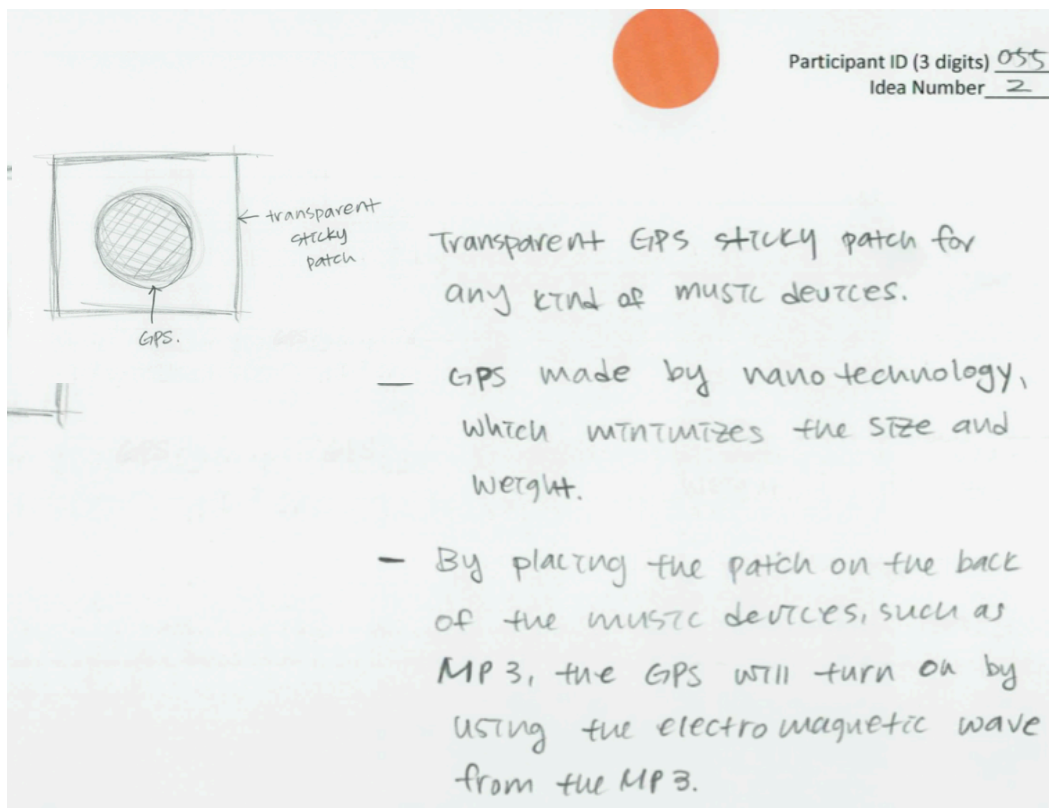 Participant ID (3 digits) 055
Idea Number 2
transparent
sticky
patch.
GPS.
Transparent GPS sticky patch for
any kind of music devices.
— GPS made by nano technology,
which minimizes the size and
weight.
— By placing the patch on the back
of the music devices, such as
MP3, the GPS will turn on by
using the electro magnetic wave
from the MP3.